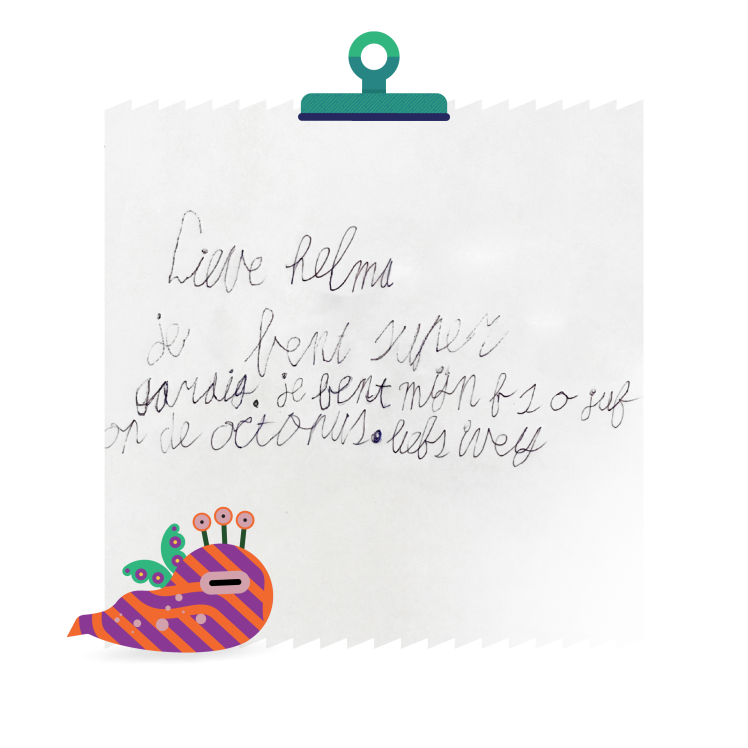 Lieve helma
je bent super
aardig. je bent mijn bso juf
op de octopus. liefs Wely